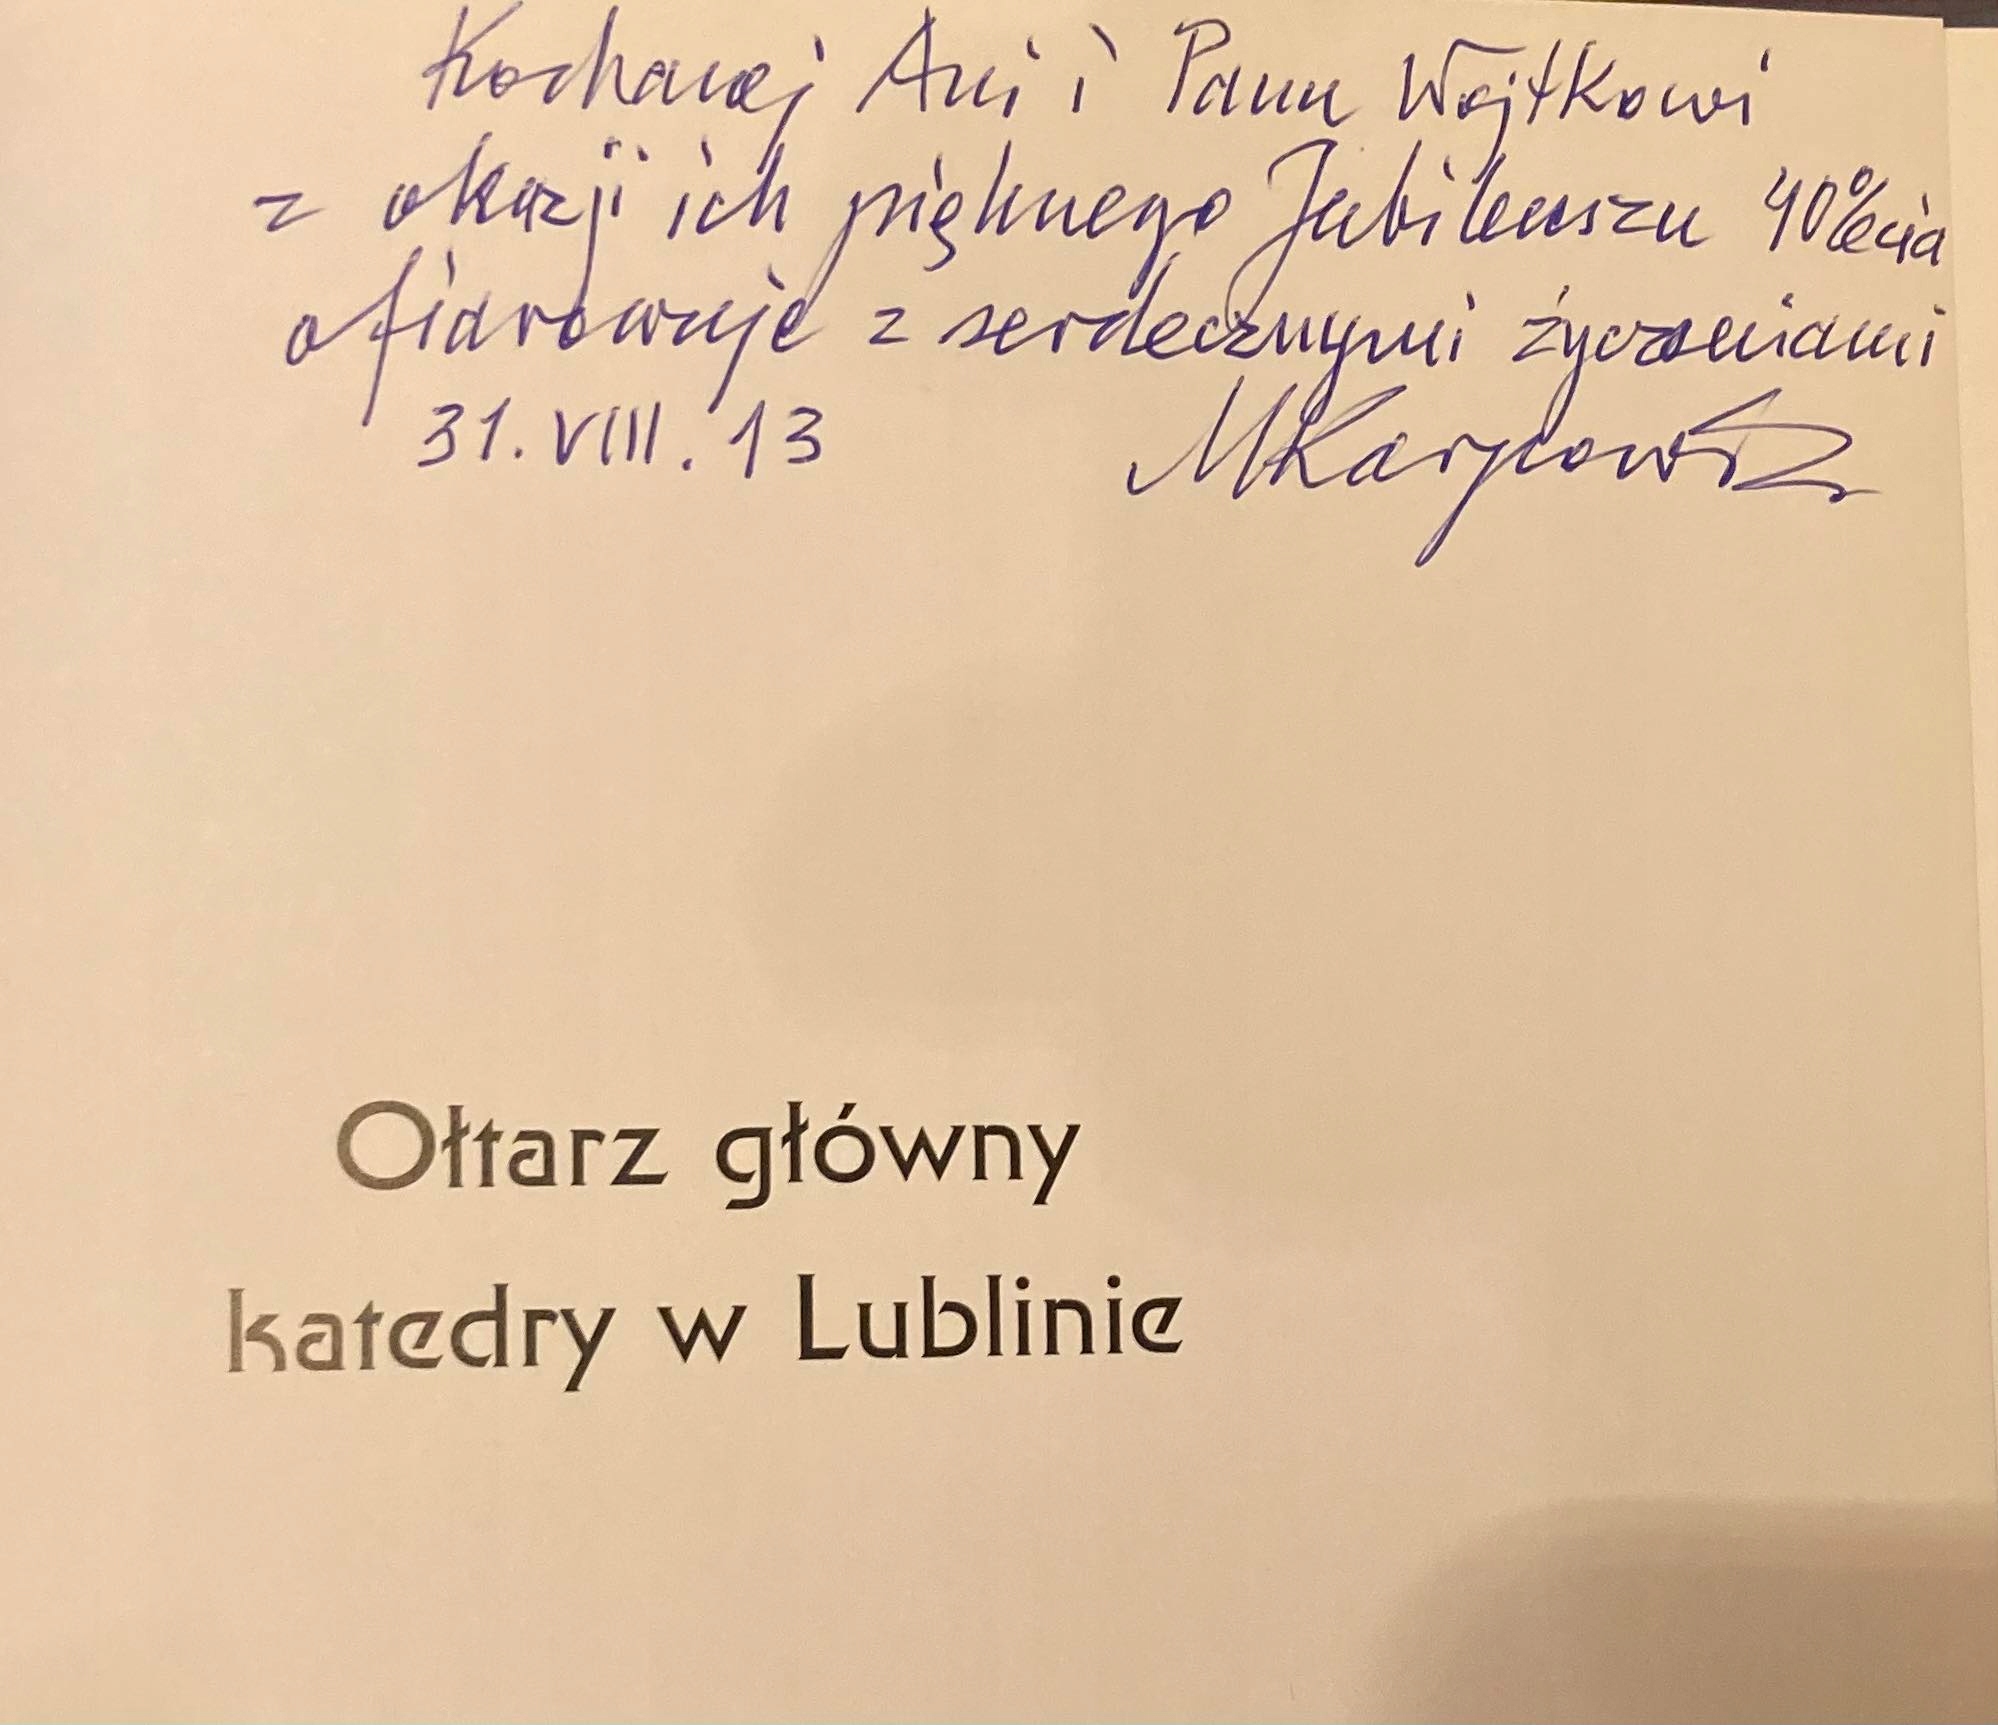 Kochanej Ani i Panu Wojtkowi
z okazji ich pięknego Jubileuszu 40lecia
ofiarowuje z serdecznymi życzeniami
31.VIII.13 MKarpowicz
Ołtarz główny
katedry w Lublinie